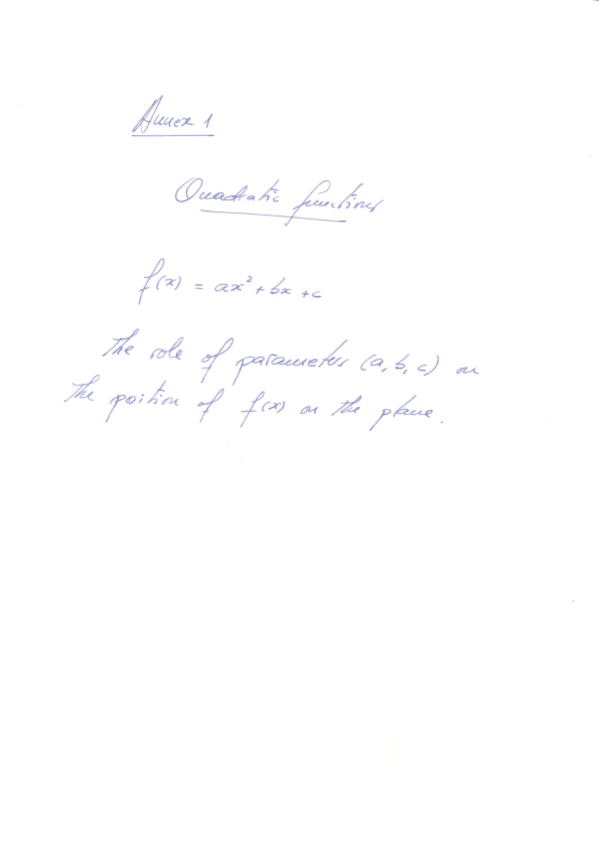 Annex 1
Quadratic functions
f(x) = ax² + bx + c
The role of parameters (a, b, c) on
the position of f(x) on the plane.